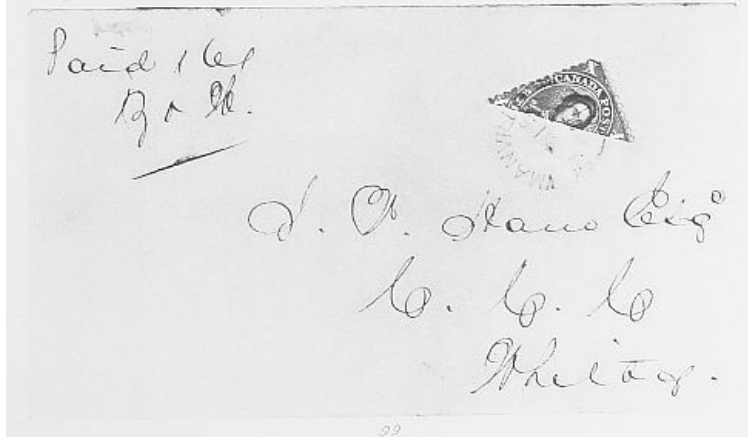 Paid 1 ct
B & H.
CANADA POST
J. V. Ham Esqr
C. C. C
Whitby.
99